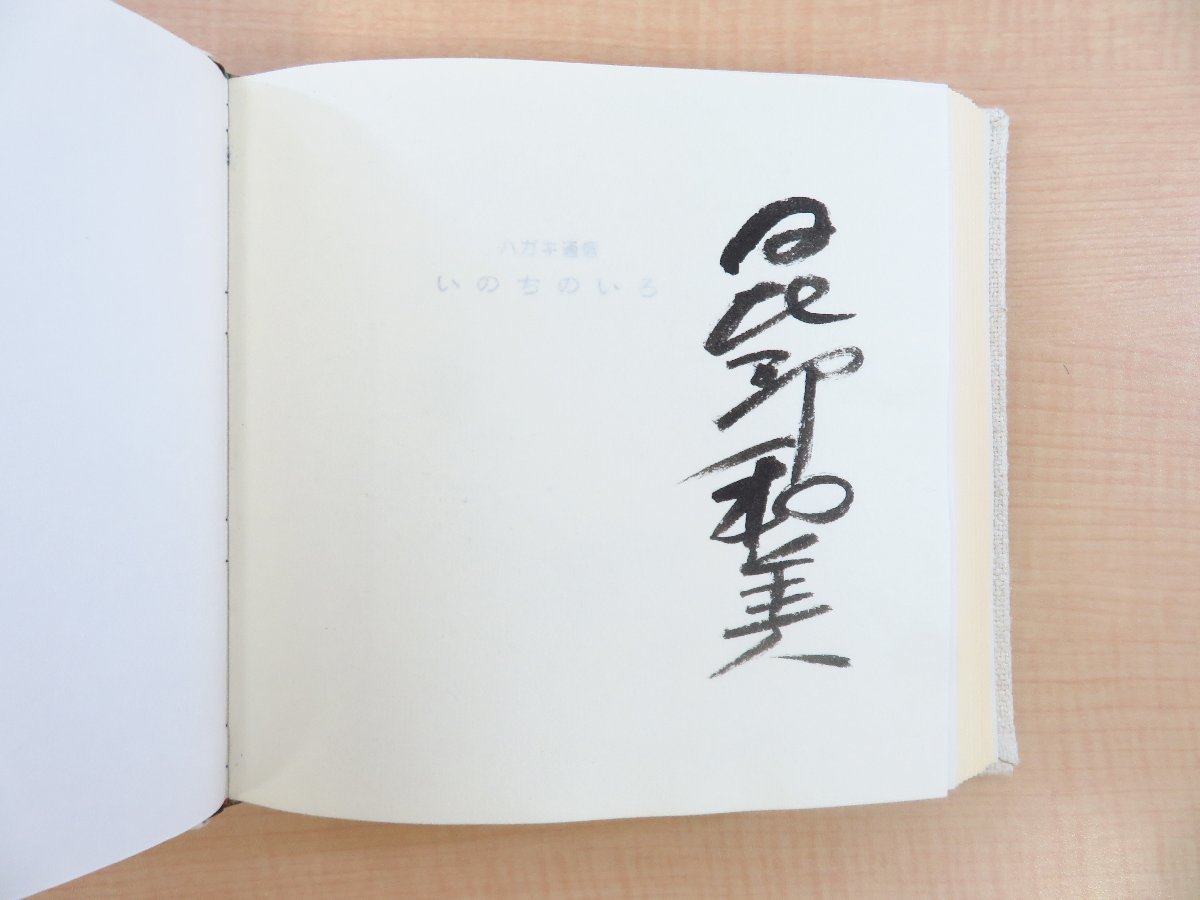 昆野和美
ハガキ通信
いのちのいろ